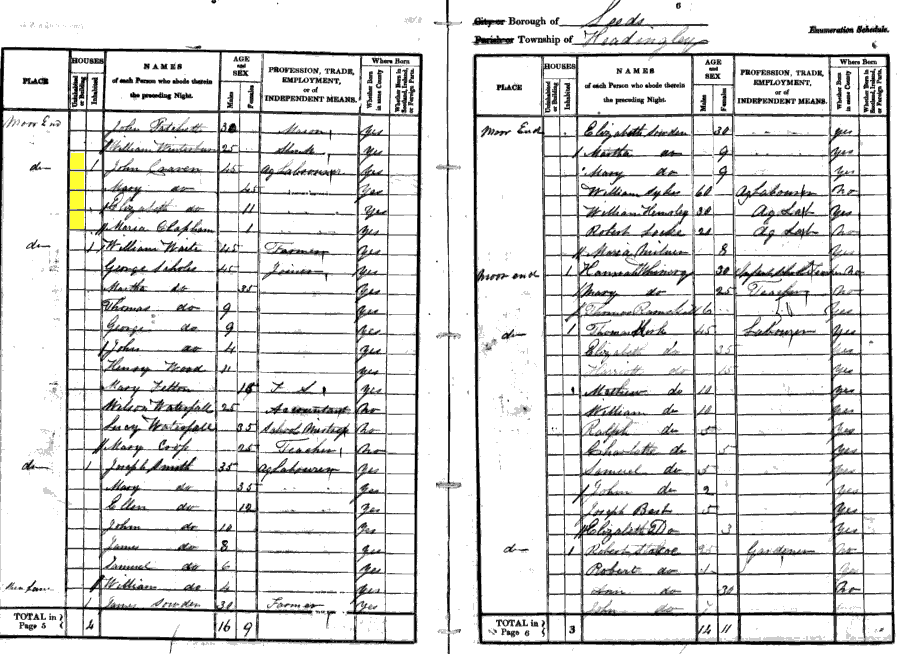 PLACE HOUSES Uninhabited or Building Inhabited NAMES of each Person who abode therein the preceding Night. AGE and SEX Males Females PROFESSION, TRADE, EMPLOYMENT, or of INDEPENDENT MEANS. Where Born Whether Born in same County Whether Born in Scotland, Ireland, or Foreign Parts.
Moor End John 30 Mason Yes
William 25 Yes
do 1 John Craven 45 Ag Labourer Yes
Mary do 45 Yes
Elizabeth do 11 Yes
Maria Clapham 1 Yes
do 1 William Waite 45 Farmer Yes
George Scholes 45 Joiner Yes
Martha do 35 Yes
Thomas do 9 Yes
George do 9 Yes
John do 4 Yes
Henry Wood 11 Yes
Mary 15 F. S. Yes
Wilson Waterfall 25 Accountant No
Lucy Waterfall 35 School Mistress No
Mary Coop 25 Teacher No
do 1 Joseph Smith 35 Ag Labourer Yes
Mary do 35 Yes
Ellen do 12 Yes
John do 10 Yes
James do 8 Yes
Samuel do 6 Yes
William do 4 Yes
1 James Sowden 30 Farmer Yes
TOTAL in Page 5 4 16 9
6
City or Borough of Leeds
Parish or Township of Headingley
Enumeration Schedule.
6
PLACE HOUSES Uninhabited or Building Inhabited NAMES of each Person who abode therein the preceding Night. AGE and SEX Males Females PROFESSION, TRADE, EMPLOYMENT, or of INDEPENDENT MEANS. Where Born Whether Born in same County Whether Born in Scotland, Ireland, or Foreign Parts.
Moor End Elizabeth Sowden 30 yes
Martha do 9 yes
Mary do 9 yes
William Sykes 60 Ag Labourer No
William 30 Ag Lab Yes
Robert Locke 20 Ag Lab No
Maria Milner 8 Yes
Moor end 1 Hannah 30 Teacher No
Mary do 25 Teacher No
Thomas 6 Yes
do 1 Thomas 45 Labourer Yes
Elizabeth do 35 Yes
Harriott do 15 Yes
Mathew do 10 Yes
William do 10 Yes
Ralph do 5 Yes
Charlotte do 5 Yes
Samuel do 5 Yes
John do 2 Yes
Joseph Best 5 Yes
Elizabeth Do 3 Yes
do 1 Robert 25 Gardener No
Robert do
Ann do 30 No
John do 7
TOTAL in Page 6 3 14 11